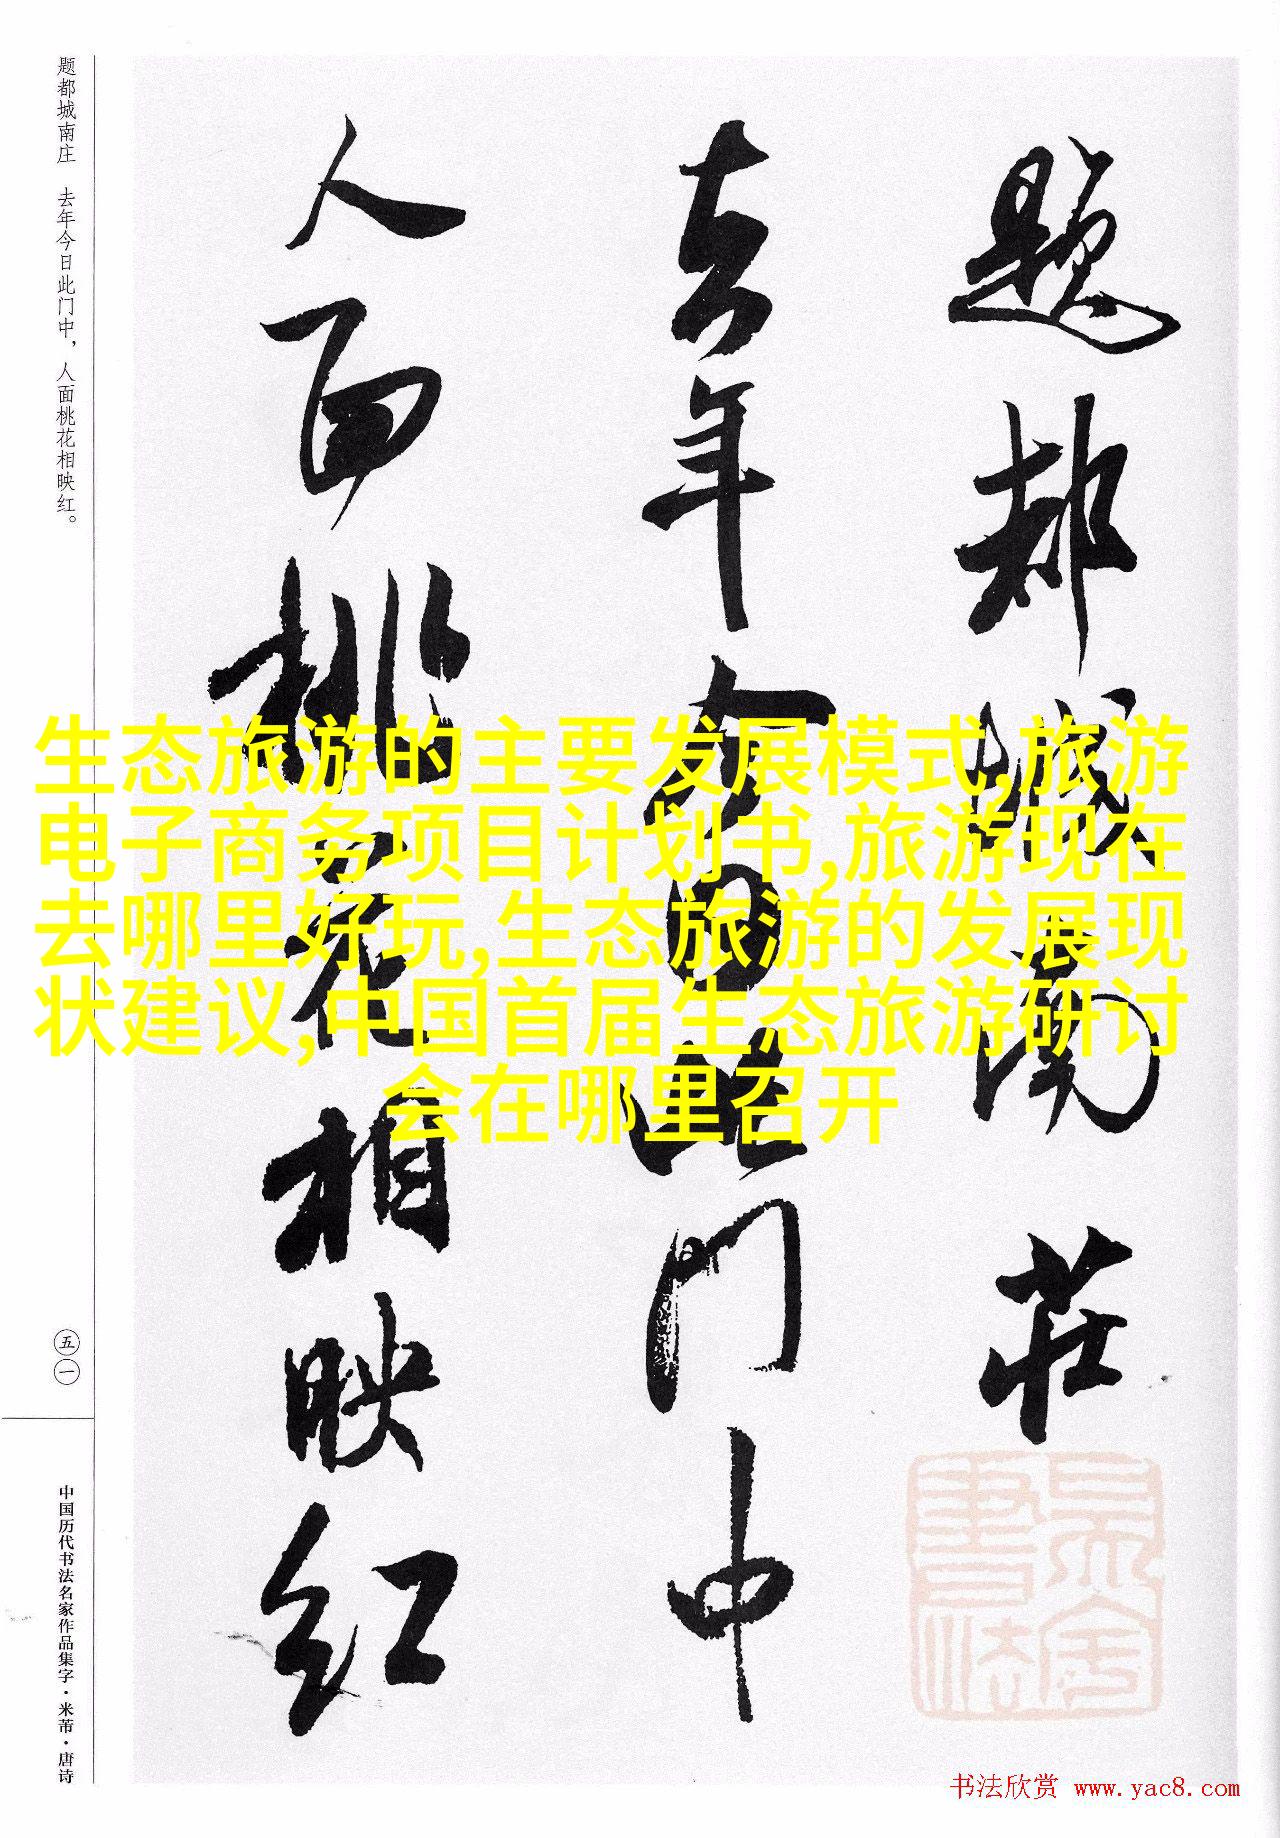 题都城南庄 去年今日此门中，人面桃花相映红。
題都城南莊
去年今日此门中
人面桃花相映红
生态旅游的主要发展模式,旅游
电子商务项目计划书,旅游现在
去哪里好玩,生态旅游的发展现
状建议,中国首届生态旅游研讨
会在哪里召开
五一
中国历代书法名家作品集字·米芾·唐诗
书法欣赏 www.yac8.com